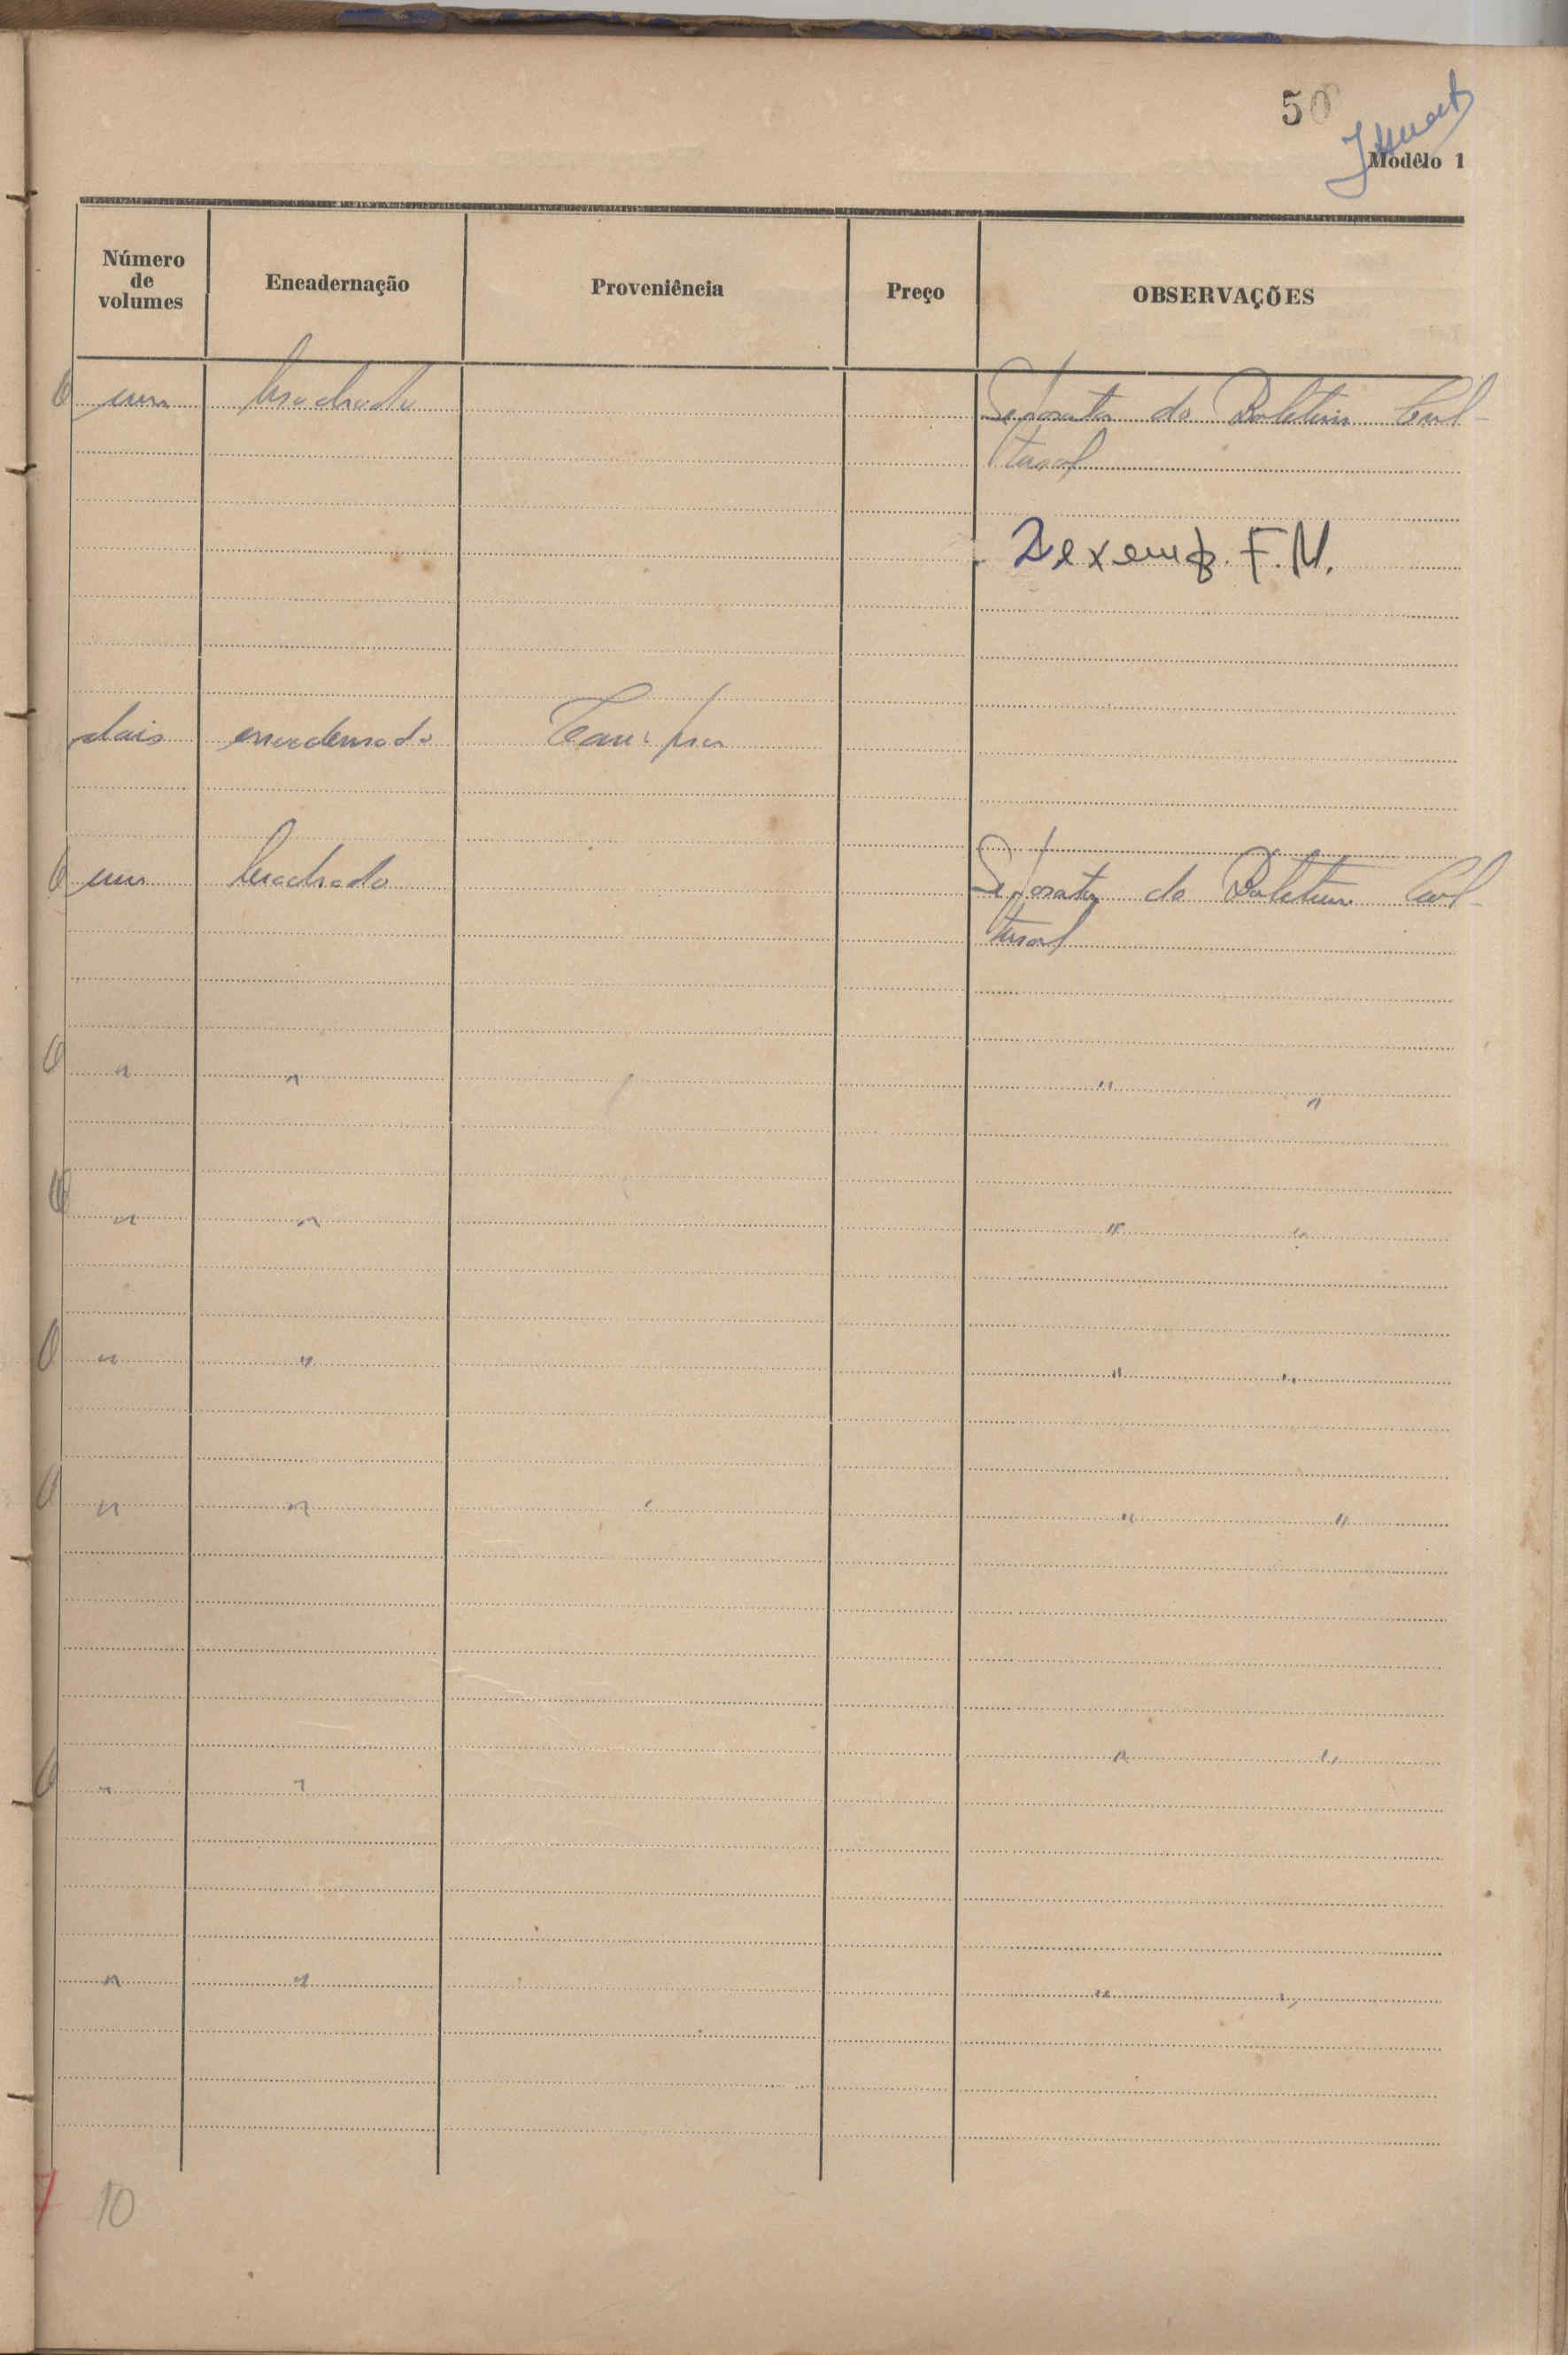 50
Modêlo 1
Número de volumes Encadernação Proveniência Preço OBSERVAÇÕES
um brochado Separata do Boletim Cul-
tural
2 exemp. F.N.
dois encadernado
um brochado Separata do Boletim Cul-
tural
" " " "
" " " "
" " " "
" " " "
" "
" "
" " " "
10